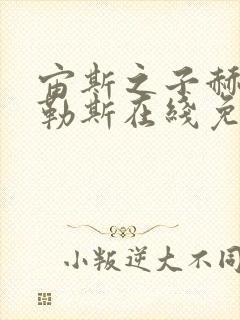 宙斯之子赫
勒斯在綫免
小叛逆大不同